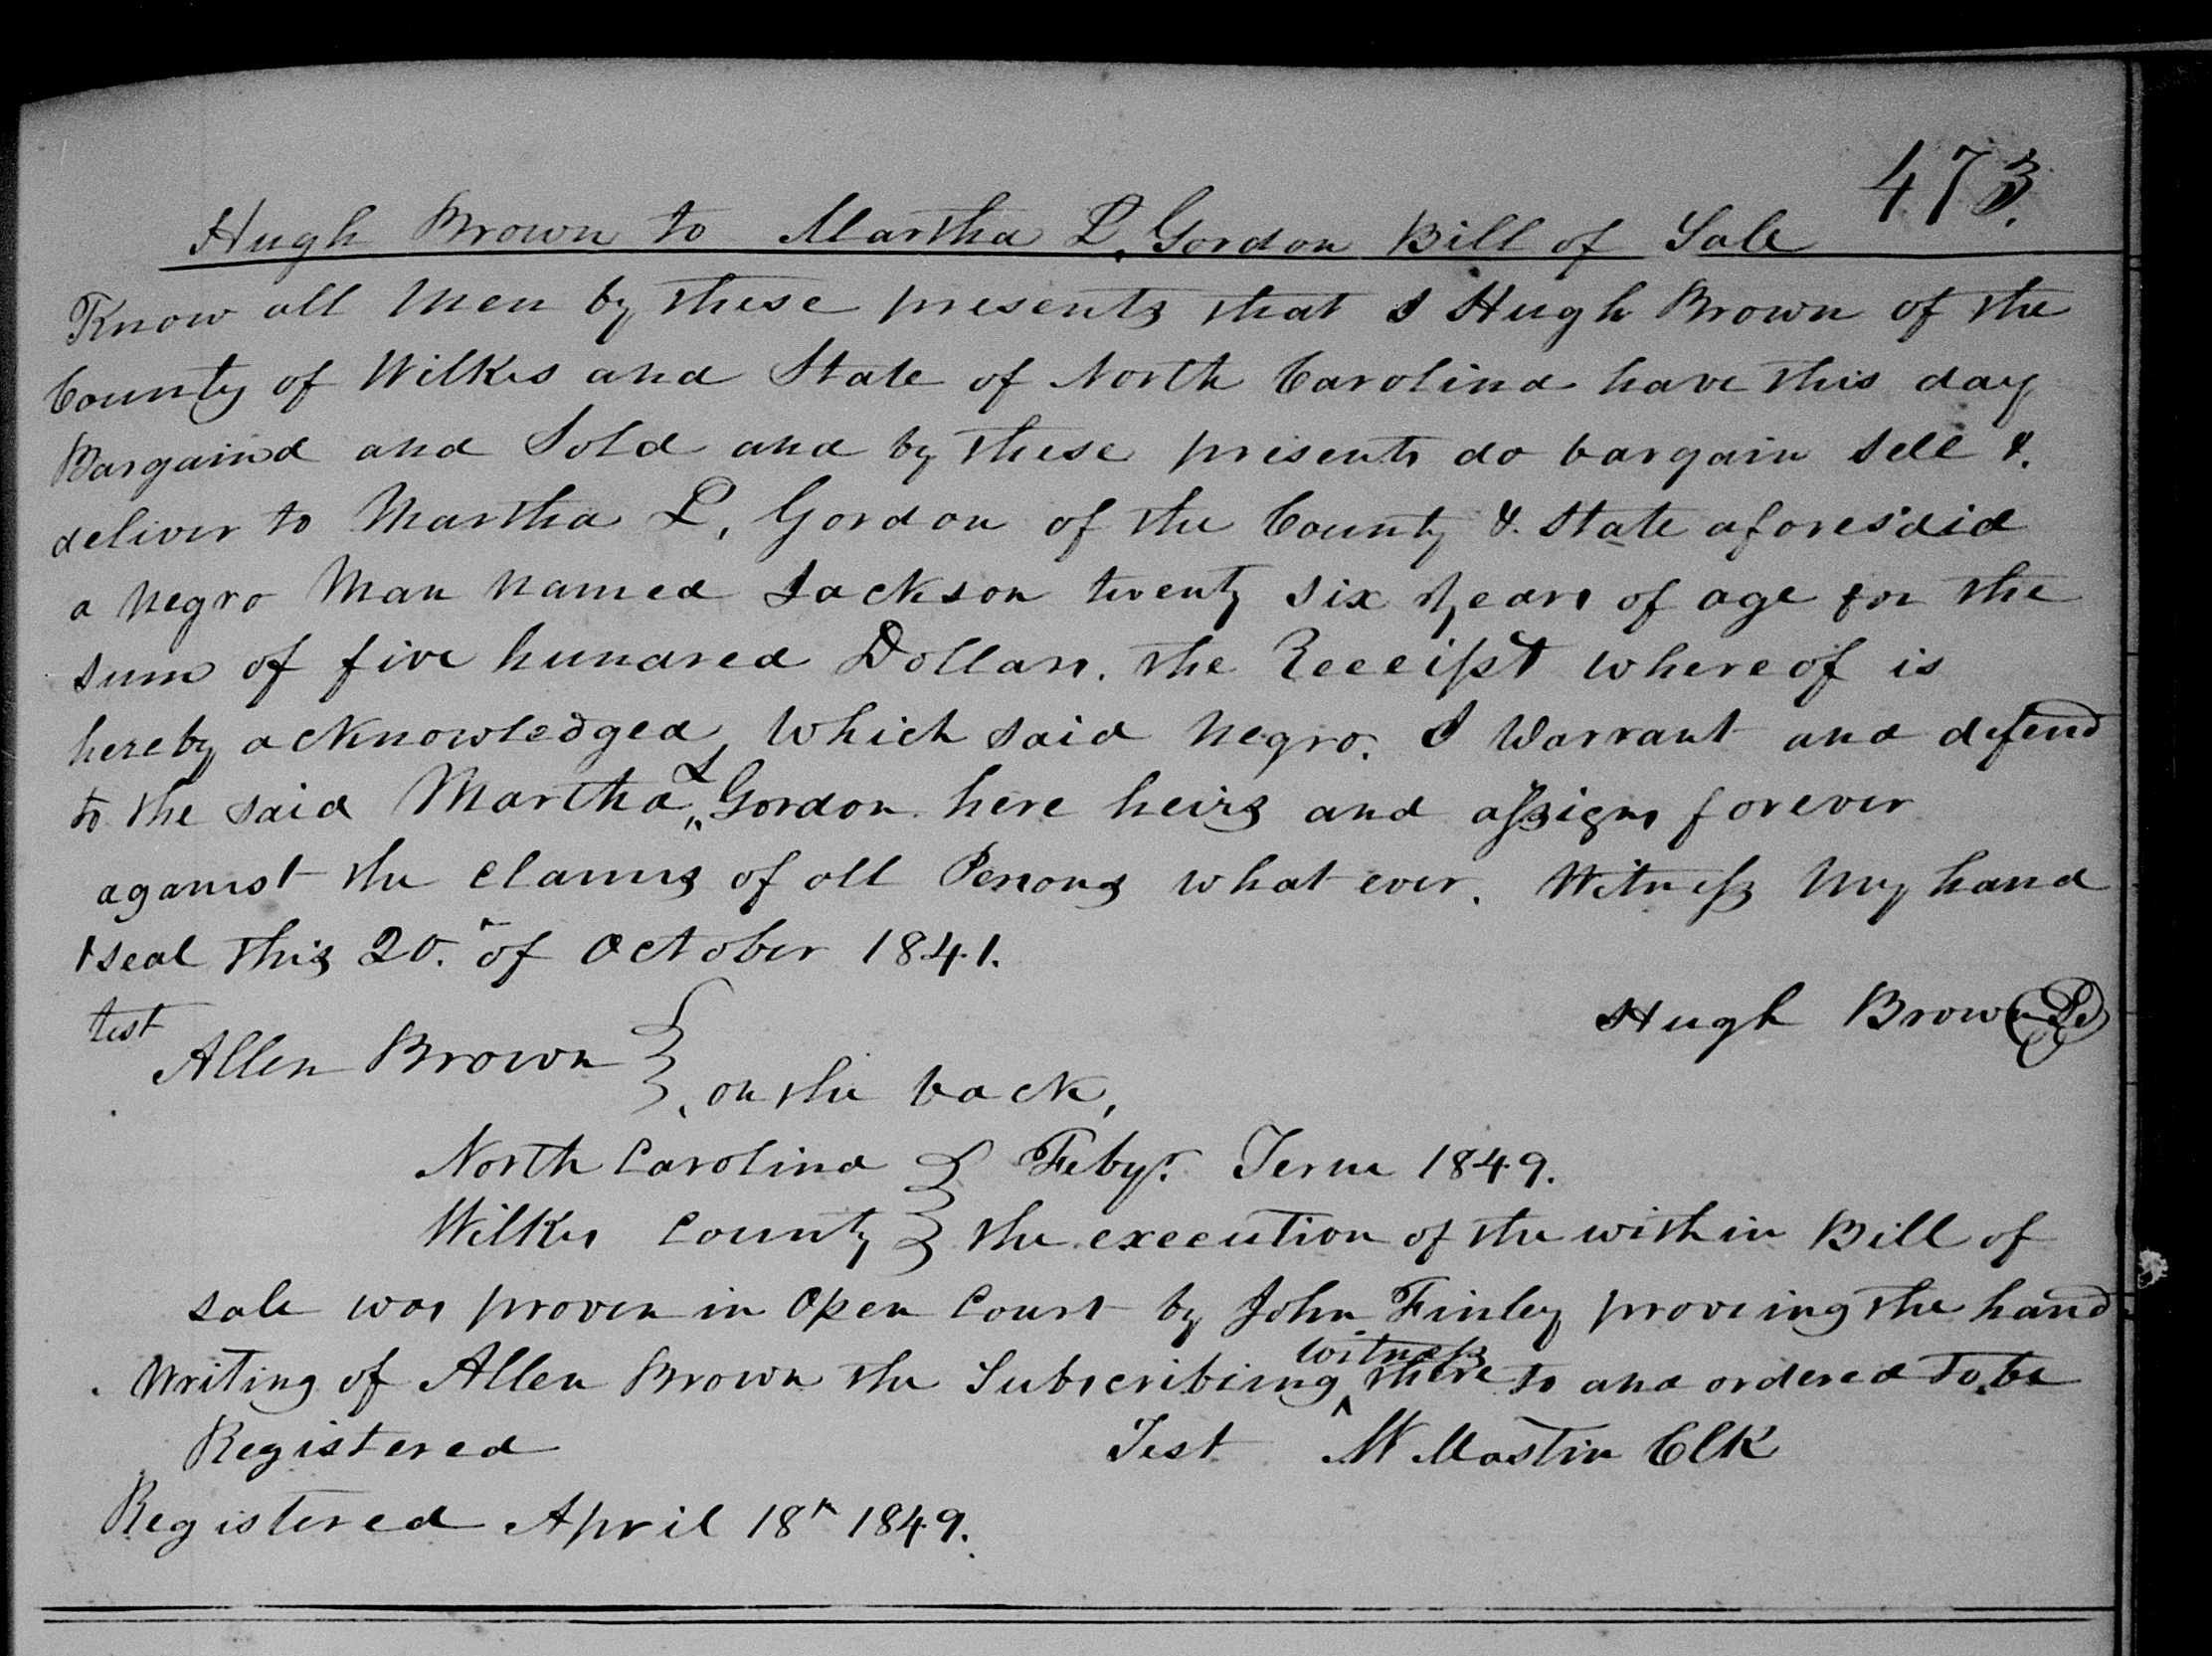 473.
Hugh Brown to Martha L. Gordon Bill of Sale
Know all Men by these presents that I Hugh Brown of the
County of Wilkes and State of North Carolina have this day
Bargaind and Sold and by these presents do bargain sell &
deliver to Martha L, Gordon of the County & State aforesaid
a negro Man named Jackson twenty six years of age for the
sum of five hundred Dollars. the Receipt whereof is
hereby acknowledged, which said negro. I Warrant and defend
to the said Martha L Gordon here heirs and assigns forever
against the claims of all Persons what ever. Witness my hand
& seal this 20.th of October 1841.
test
Hugh Brown
Allen Brown
on the back,
North Carolina } Feby. Term 1849.
Wilkes County } the execution of the within Bill of
sale was proven in Open Court by John Finley proveing the hand
writing of Allen Brown the Subscribing witness there to and ordered to be
Registered Test W Mastin Clk
Registered April 18th 1849.